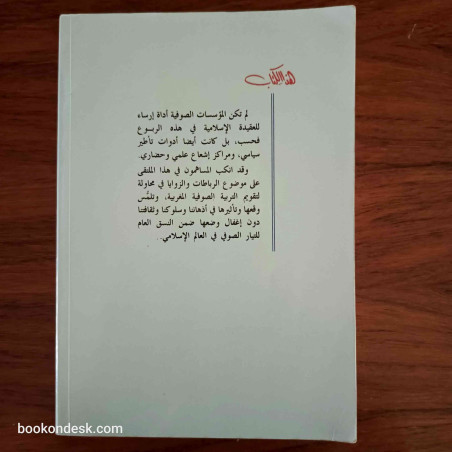 هذا الكتاب
لم تكن المؤسسات الصوفية أداة إرساء
للعقيدة الإسلامية في هذه الربوع
فحسب، بل كانت أيضا أدوات تأطير
سياسي، ومراكز إشعاع علمي وحضاري.
وقد انكب المساهمون في هذا الملتقى
على موضوع الرباطات والزوايا في محاولة
لتقويم التربية الصوفية المغربية، وتلمُّس
وقعها وتأثيرها في أذهاننا وسلوكنا وثقافتنا
دون إغفال وضعها ضمن النسق العام
للتيار الصوفي في العالم الإسلامي.
bookondesk.com